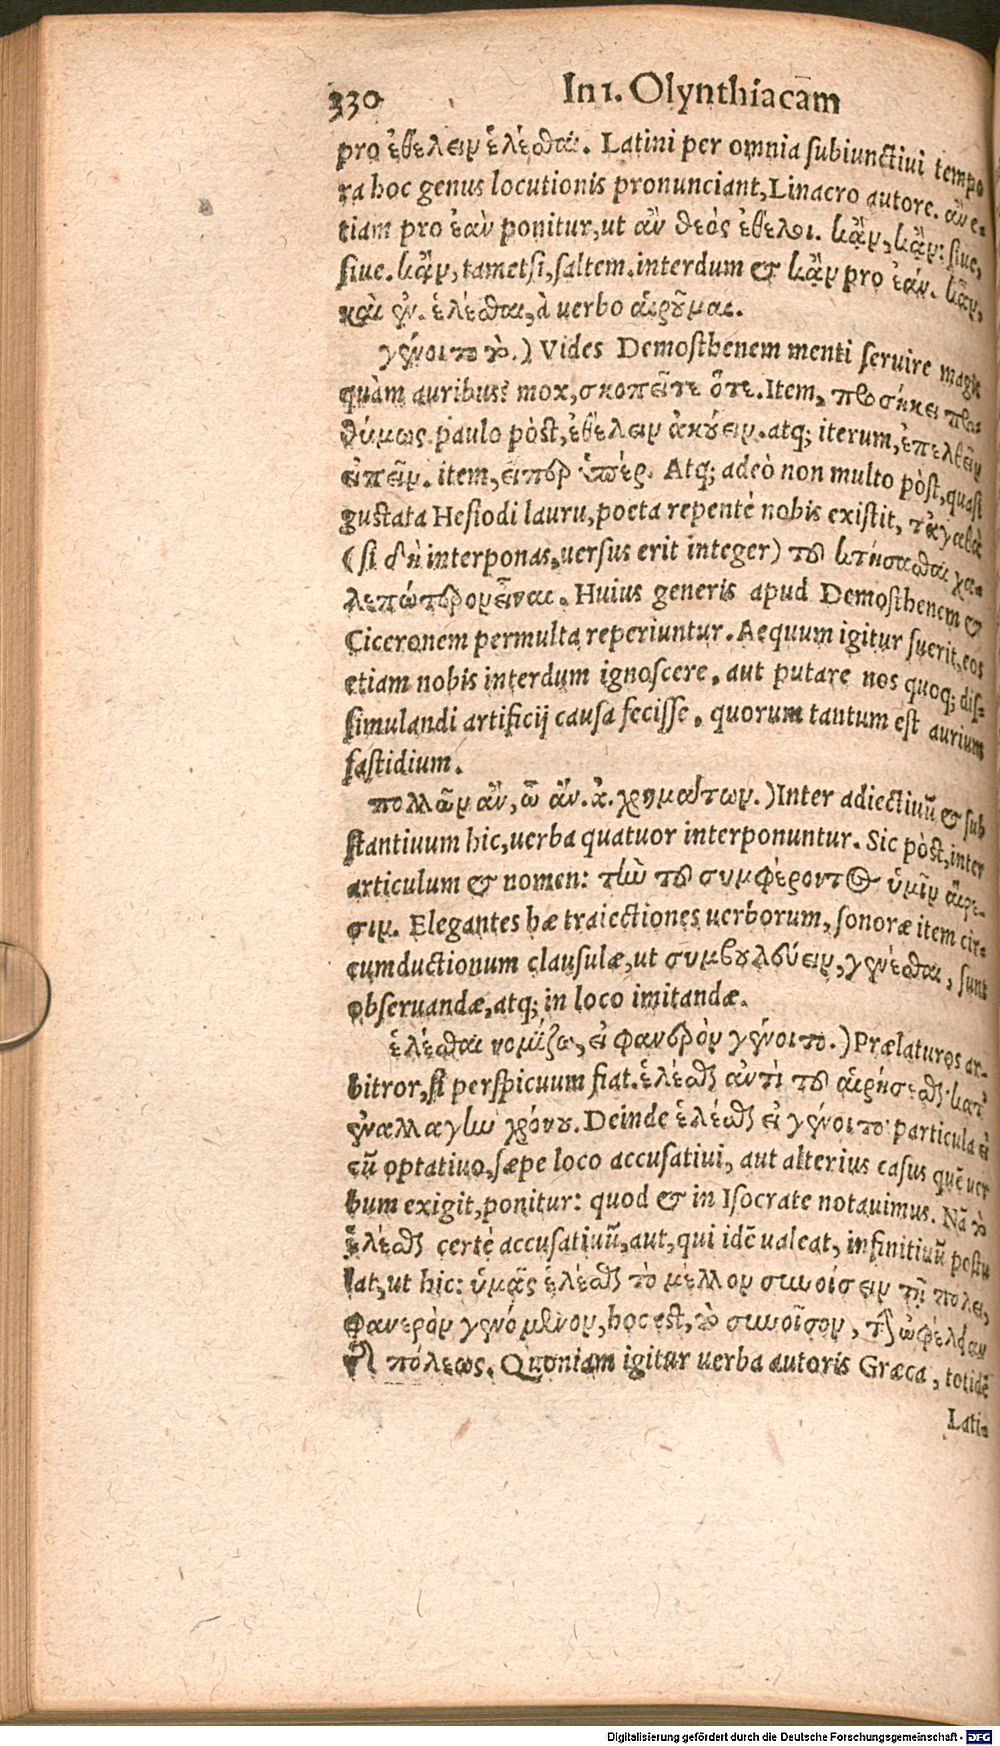 330 In 1. Olynthiacam
pro ἐθέλειν ἑλέσθαι. Latini per omnia subiunctivi tempo
ra hoc genus locutionis pronunciant, Linacro autore. ἂν e-
tiam pro ἐὰν ponitur, ut ἂν θεὸς ἐθέλοι. κἂν, κἂν: siue,
siue. κἂν, tametsi, saltem. interdum & κἂν pro ἐάν. κἂν,
καὶ ἐν. ἑλέσθαι, à verbo αἱροῦμαι.
γένοιτο τὸ.) Vides Demosthenem menti servire magis
quàm auribus: mox, σκοπεῖτε ὅτε. Item, προσήκει προ
θύμως. paulo pòst, ἐθέλειν ἀκούειν. atq; iterum, ἐπελθεῖν
εἰπεῖν. item, εἴπερ ὑπὲρ. Atq; adeò non multo pòst, quasi
gustata Hesiodi lauru, poeta repentè nobis existit, τἀγαθὰ
(si δὴ interponas, versus erit integer) τοῦ κτήσασθαι χα-
λεπώτερον εἶναι. Huius generis apud Demosthenem &
Ciceronem permulta reperiuntur. Aequum igitur fuerit, eos
etiam nobis interdum ignoscere, aut putare nos quoq; dis-
simulandi artificij causa fecisse, quorum tantum est aurium
fastidium.
πολλῶν ἂν, ὦ ἄν. ἀ. χρημάτων.) Inter adiectiuũ & sub
stantiuum hic, verba quatuor interponuntur. Sic pòst, inter
articulum & nomen: τὴν τοῦ συμφέροντος ὑμῖν αἵρε-
σιν. Elegantes hæ traiectiones verborum, sonoræ item cir-
cumductionum clausulæ, ut συμβουλεύειν, γενέσθαι, sunt
observandæ, atq; in loco imitandæ.
ἑλέσθαι νομίζω, εἰ φανερὸν γένοιτο.) Prælaturos ar-
bitror, si perspicuum fiat. ἑλέσθαι ἀντὶ τοῦ αἱρήσεσθαι κατ’
ἐναλλαγὴν χρόνου. Deinde ἑλέσθαι εἰ γένοιτο· particula εἰ
cũ optatiuo, sæpe loco accusatiui, aut alterius casus quẽ ver
bum exigit, ponitur: quod & in Isocrate notauimus. Nã τὸ
ἑλέσθαι certè accusatiuũ, aut, qui idẽ valeat, infinitiuũ postu
lat, ut hic: ὑμᾶς ἑλέσθαι τὸ μέλλον συνοίσειν τῇ πόλει,
φανερὸν γενόμενον, hoc est, τὸ συνοῖσον, τὴν ὠφέλειαν
τῆς πόλεως. Quoniam igitur verba autoris Græca, totidẽ
Lati-
Digitalisierung gefördert durch die Deutsche Forschungsgemeinschaft - DFG